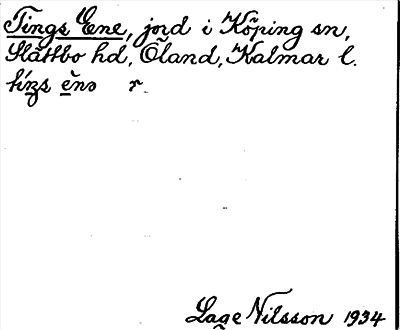 Tings Ene, jord i Köping sn,
Slättbo hd, Öland, Kalmar l.
Lage Nilsson 1934